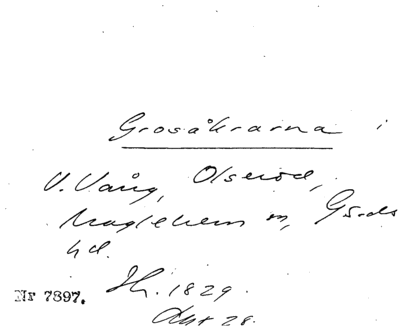 Grosåkrarna i
V. Vång, Olseröd,
Maglehems sn, Gärds
hd.
Nr 7897. Sk. 1829.
Akt 28.